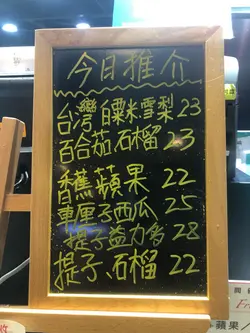 今日推介
台灣白粟米雪梨23
百合茄石榴23
香蕉蘋果 22
車厘子西瓜 25
提子益力多28
提子、石榴 22
蘋果